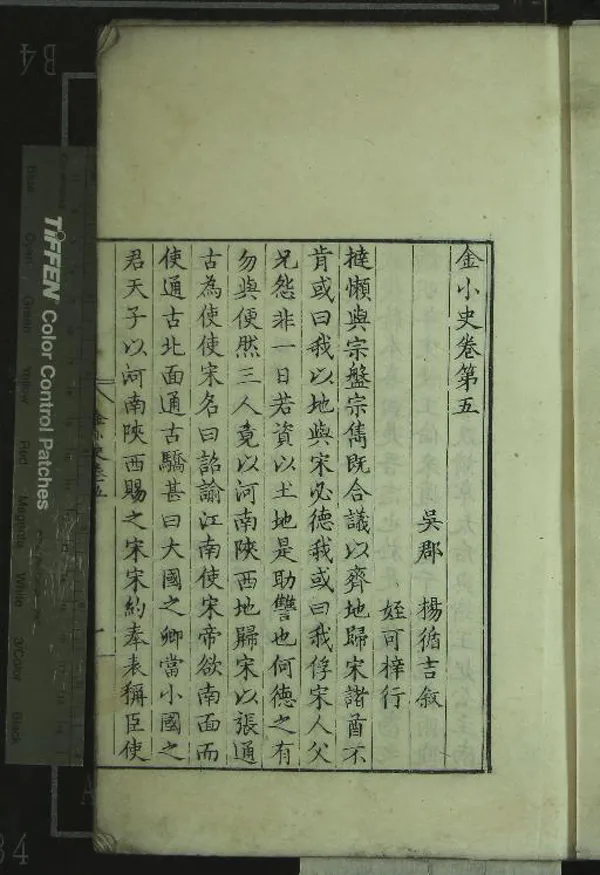 金小史卷第五
吳郡 楊循吉叙
姪可梓行
撻懶與宗盤宗雋既合議以齊地歸宋諸酋不
肯或曰我以地與宋必德我或曰我俘宋人父
兄怨非一日若資以土地是助讐也何德之有
勿與便然三人竟以河南陝西地歸宋以張通
古為使使宋名曰詔諭江南使宋帝欲南面而
使通古北面通古驕甚曰大國之卿當小國之
君天子以河南陝西賜之宋宋約奉表稱臣使
金小史卷五
一
TIFFEN Color Control Patches
Blue
Cyan
Green
Yellow
Red
Magenta
White
3/Color
Black
B4